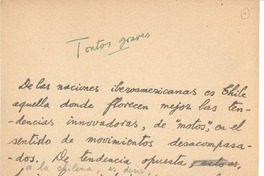 Tontos graves
De las naciones iberoamericanas es Chile
aquella donde florecen mejor las ten-
dencias innovadoras, de "motos", en el
sentido de movimientos desacompasa-
dos. De tendencia opuesta,
a la chilena, es decir,